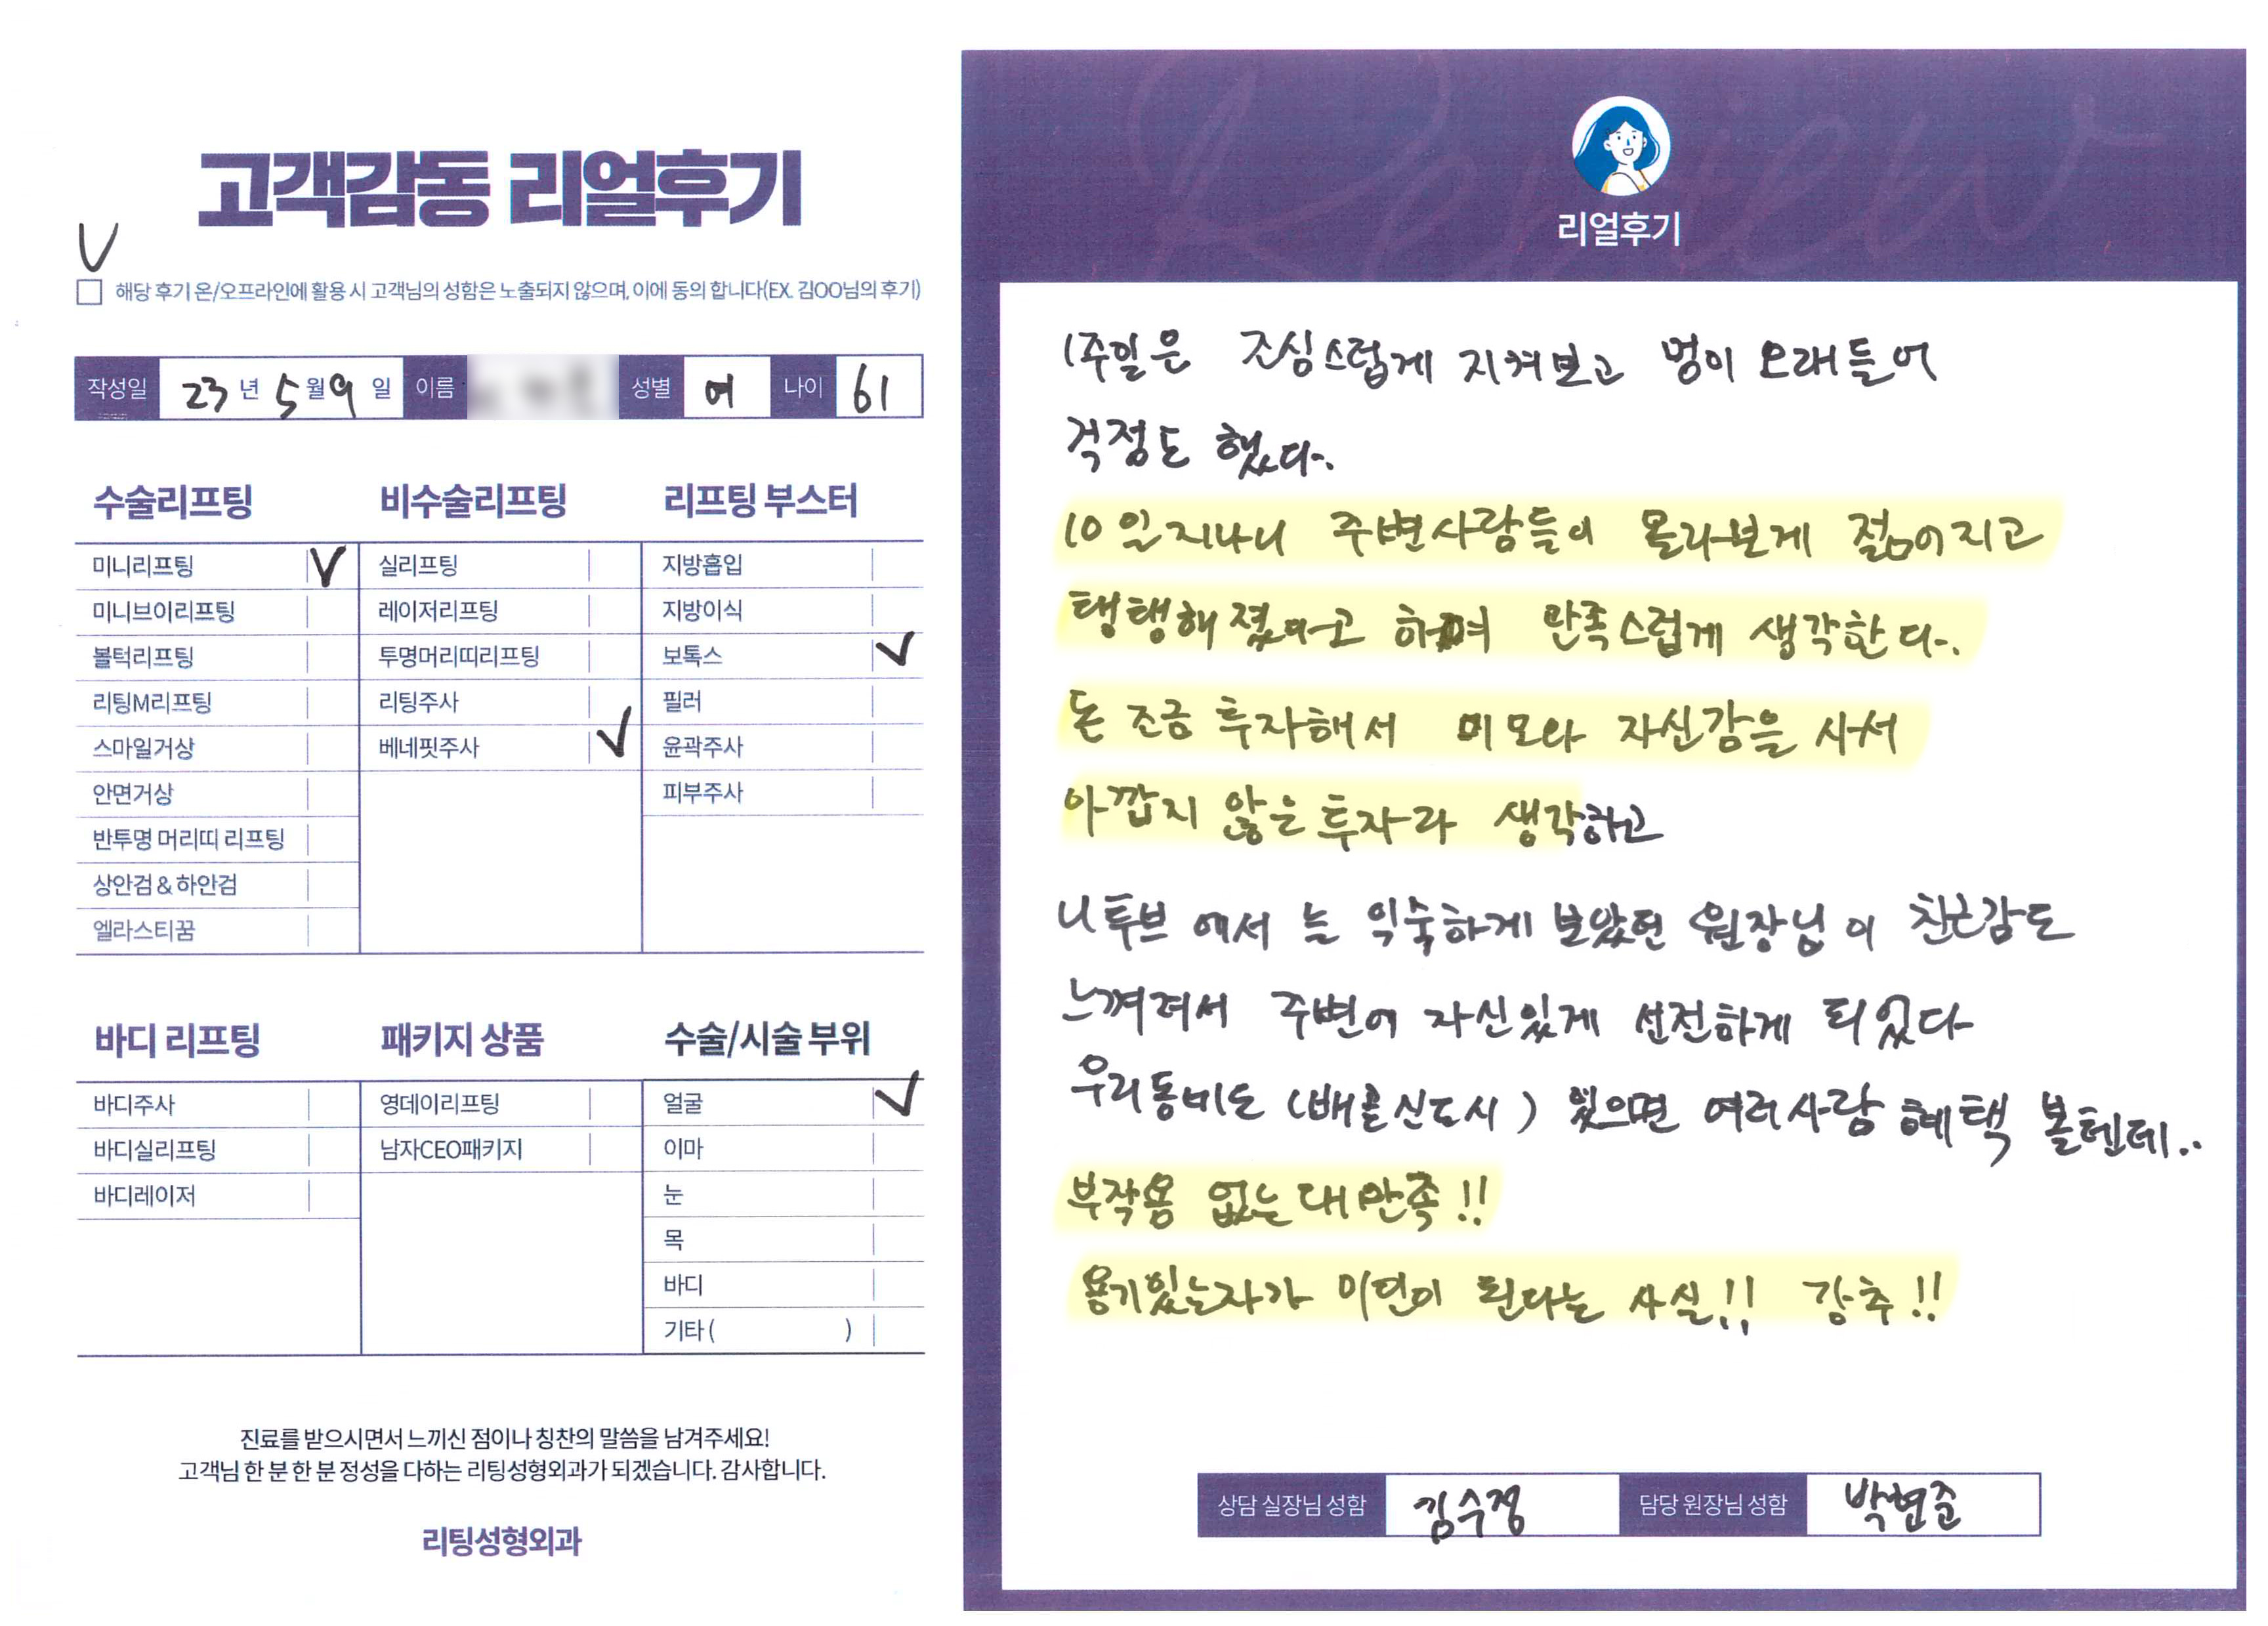 고객감동 리얼후기
해당 후기 온/오프라인에 활용 시 고객님의 성함은 노출되지 않으며, 이에 동의 합니다(EX. 김OO님의 후기)
작성일 23 년 5 월 9 일 이름 성별 여 나이 61
수술리프팅
미니리프팅 V
미니브이리프팅
볼턱리프팅
리팅M리프팅
스마일거상
안면거상
반투명 머리띠 리프팅
상안검 & 하안검
엘라스티꿈
비수술리프팅
실리프팅
레이저리프팅
투명머리띠리프팅
리팅주사
베네핏주사 ✓
리프팅 부스터
지방흡입
지방이식
보톡스 ✓
필러
윤곽주사
피부주사
바디 리프팅
바디주사
바디실리프팅
바디레이저
패키지 상품
영데이리프팅
남자CEO패키지
수술/시술 부위
얼굴 ✓
이마
눈
목
바디
기타 ( )
진료를 받으시면서 느끼신 점이나 칭찬의 말씀을 남겨주세요!
고객님 한 분 한 분 정성을 다하는 리팅성형외과가 되겠습니다. 감사합니다.
리팅성형외과
Review
리얼후기
1주일은 조심스럽게 지켜보고 멍이 오래들어
걱정도 했다.
10일지나니 주변사람들이 몰라보게 젊어지고
탱탱해졌다고 하며 만족스럽게 생각한다.
돈 조금 투자해서 미모와 자신감을 사서
아깝지 않은 투자라 생각하고
너투브에서 는 익숙하게 보았던 원장님이 친근감도
느껴져서 주변에 자신있게 선전하게 되었다
우리동네도 (배곧신도시) 있으면 여러사람 혜택 볼텐데..
부작용 없는 대만족!!
용기있는자가 미인이 된다는 사실!! 강추!!
상담 실장님 성함 김수정 담당 원장님 성함 박현준